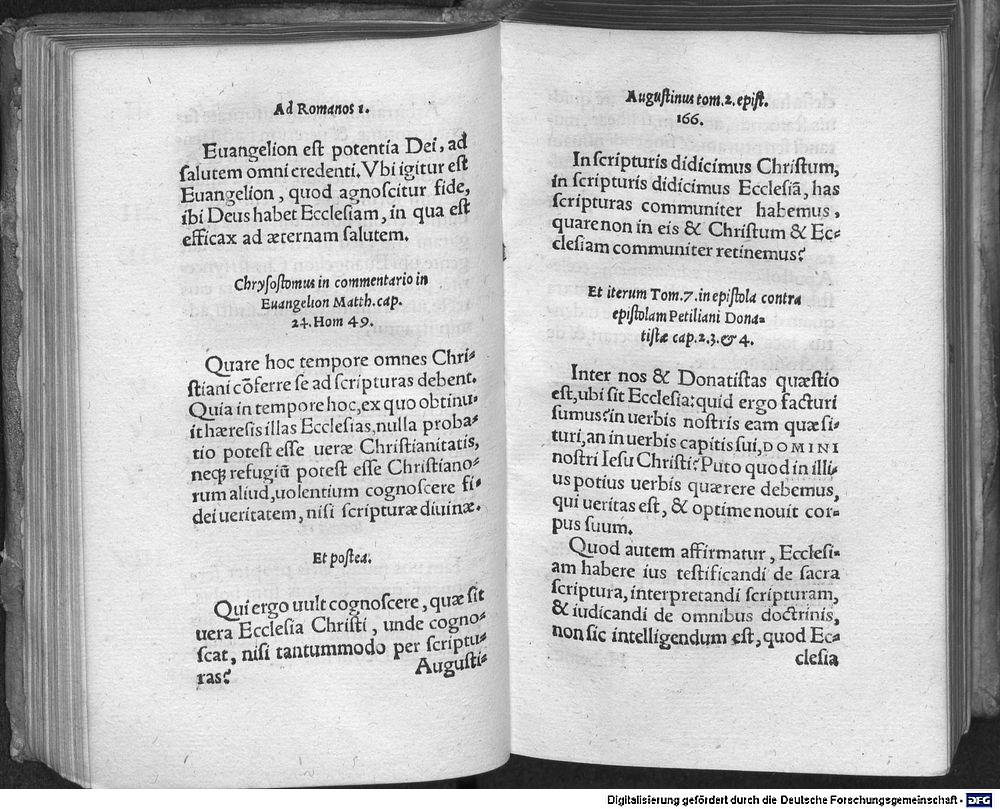 Ad Romanos 1.
Euangelion est potentia Dei, ad
salutem omni credenti. Vbi igitur est
Euangelion, quod agnoscitur fide,
ibi Deus habet Ecclesiam, in qua est
efficax ad æternam salutem.
Chrysostomus in commentario in
Euangelion Matth. cap.
24. Hom 49.
Quare hoc tempore omnes Chri-
stiani cõferre se ad scripturas debent.
Quia in tempore hoc, ex quo obtinu-
it hæresis illas Ecclesias, nulla proba-
tio potest esse ueræ Christianitatis,
neqꝫ refugiũ potest esse Christiano-
rum aliud, uolentium cognoscere fi-
dei ueritatem, nisi scripturæ diuinæ.
Et postea.
Qui ergo uult cognoscere, quæ sit
uera Ecclesia Christi, unde cogno-
scat, nisi tantummodo per scriptu-
ras?
Augusti-
Augustinus tom. 2. epist.
166.
In scripturis didicimus Christum,
in scripturis didicimus Ecclesiã, has
scripturas communiter habemus,
quare non in eis & Christum & Ec-
clesiam communiter retinemus?
Et iterum Tom. 7. in epistola contra
epistolam Petiliani Dona-
tistæ cap. 2. 3. & 4.
Inter nos & Donatistas quæstio
est, ubi sit Ecclesia: quid ergo facturi
sumus? in uerbis nostris eam quæsi-
turi, an in uerbis capitis sui, DOMINI
nostri Iesu Christi? Puto quod in illi-
us potius uerbis quærere debemus,
qui ueritas est, & optime nouit cor-
pus suum.
Quod autem affirmatur, Ecclesi-
am habere ius testificandi de sacra
scriptura, interpretandi scripturam,
& iudicandi de omnibus doctrinis,
non sic intelligendum est, quod Ec-
clesia
Digitalisierung gefördert durch die Deutsche Forschungsgemeinschaft - DFG